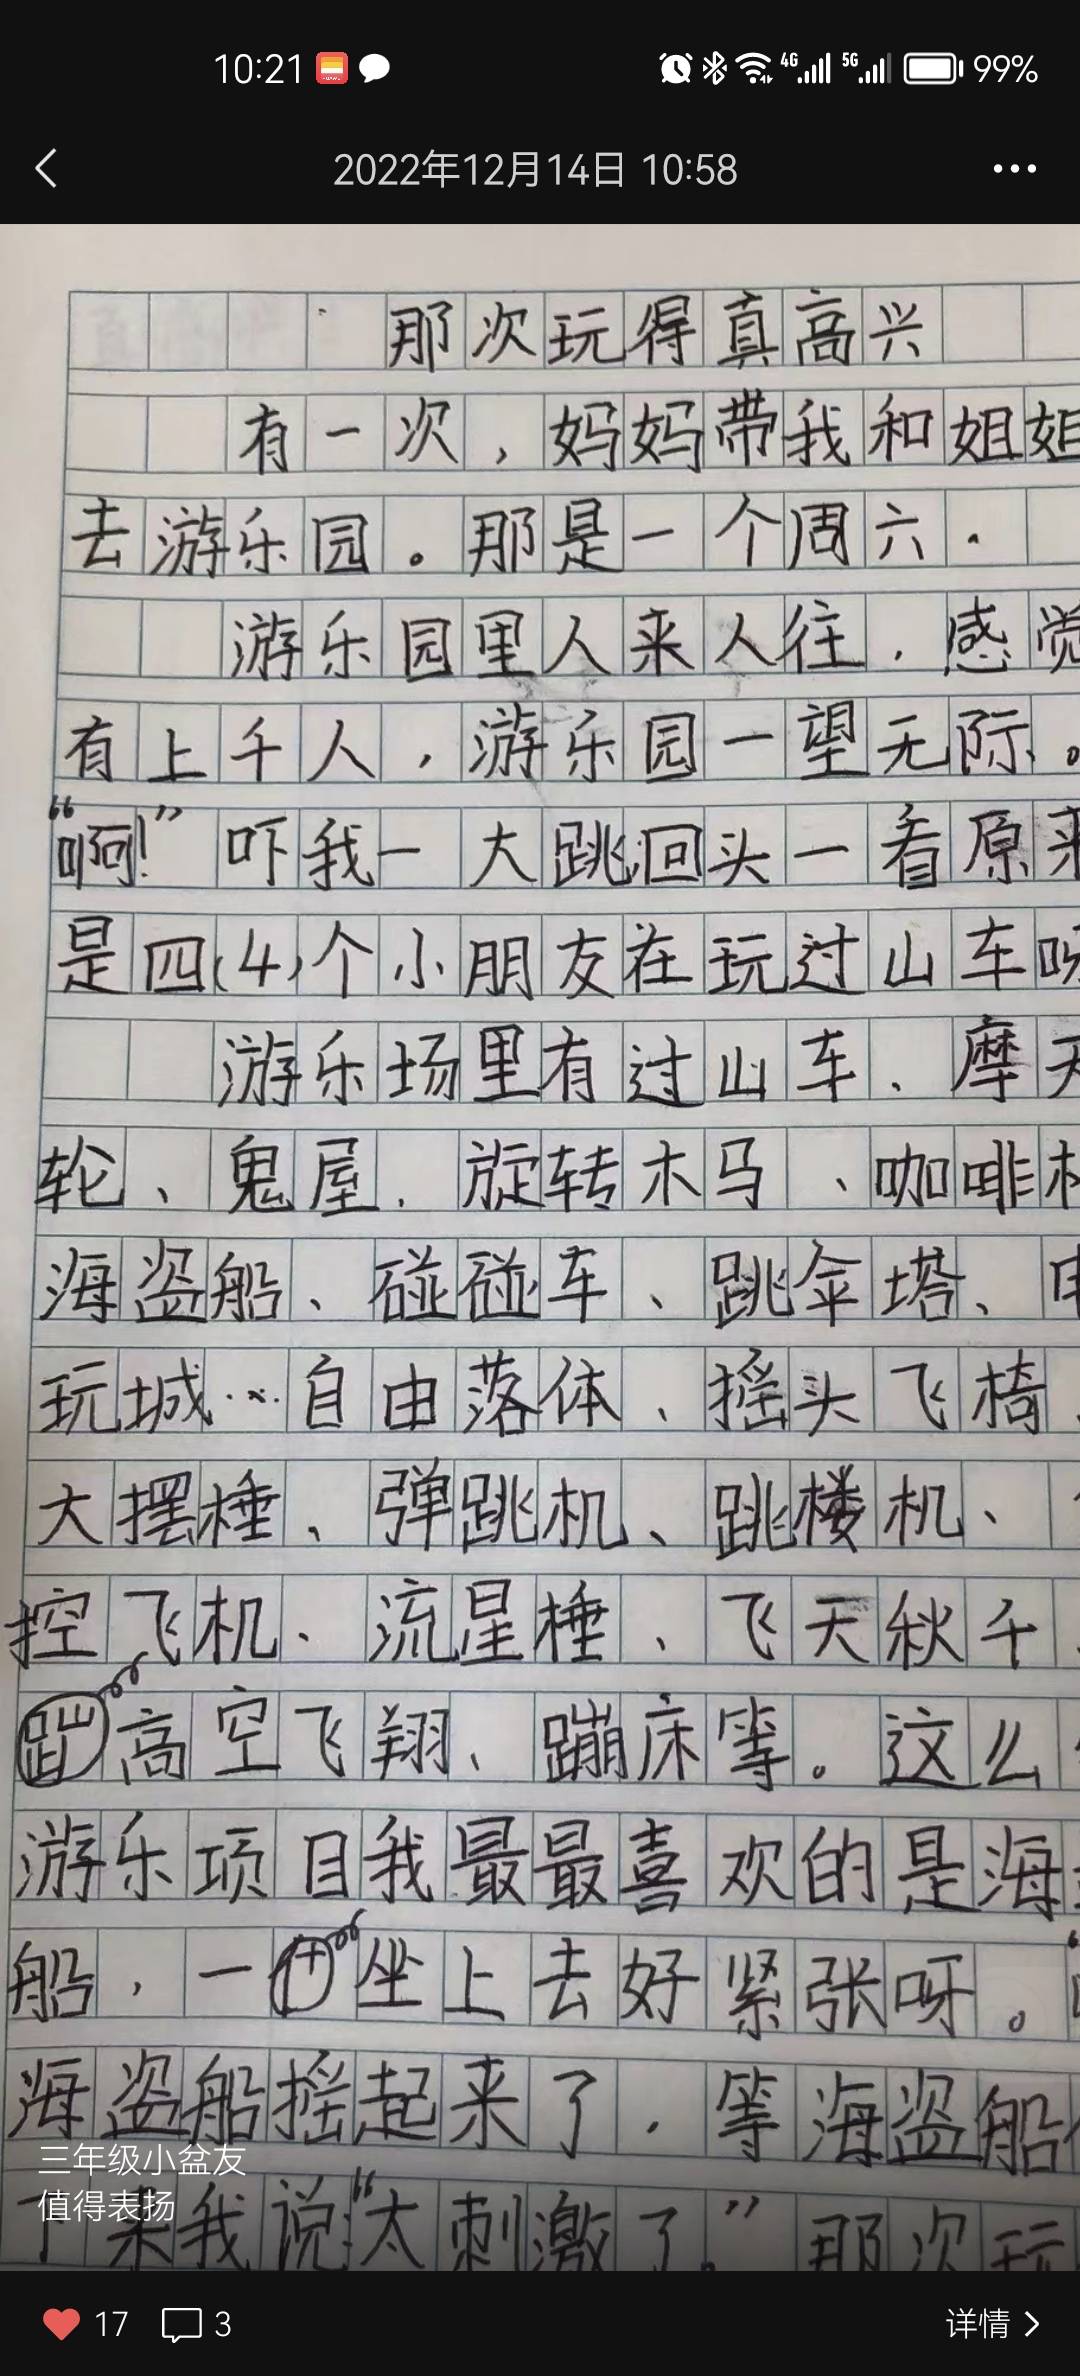 10:21 4G 5G 99%
2022年12月14日 10:58
那次玩得真高兴
有一次，妈妈带我和姐姐
去游乐园。那是一个周六.
游乐园里人来人往，感觉
有上千人，游乐园一望无际。
“啊!”吓我一大跳回头一看原来
是四(4)个小朋友在玩过山车呀
游乐场里有过山车、摩天
轮、鬼屋、旋转木马、咖啡杯
海盗船、碰碰车、跳伞塔、
玩城……自由落体、摇头飞椅、
大摆棰、弹跳机、跳楼机、
控飞机、流星棰、飞天秋千、
高空飞翔、蹦床等。这么
游乐项目我最最喜欢的是海
船，一坐上去好紧张呀。“
海盗船摇起来了，等海盗船
下来我说:“太刺激了。”那次玩
三年级小盆友
值得表扬
17 3 详情